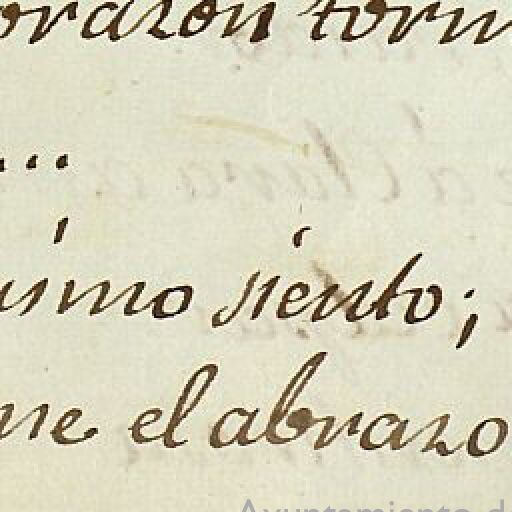 orazon torm
...
simo siento;
me el abrazo
Ayuntamiento d